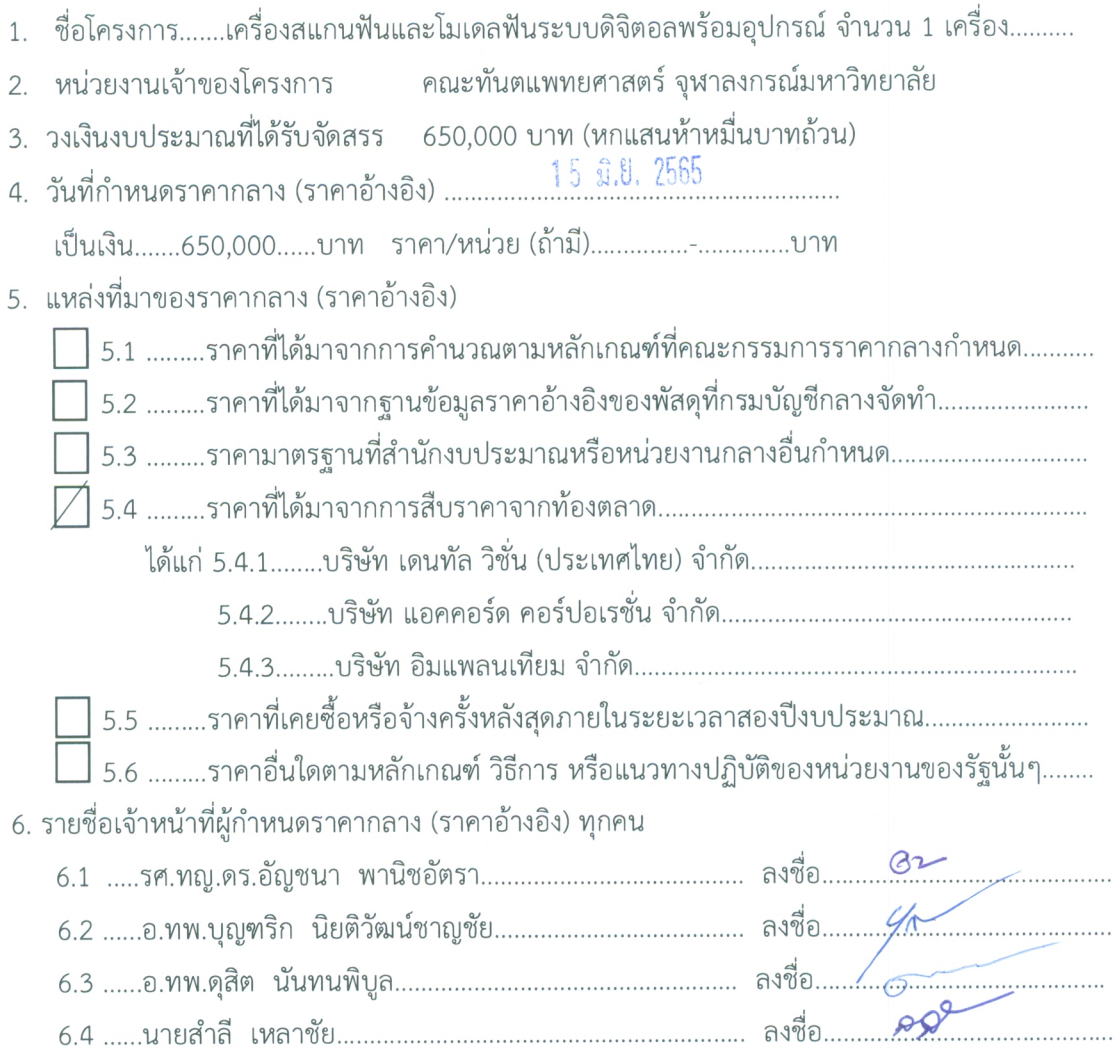 1. ชื่อโครงการ.......เครื่องสแกนฟันและโมเดลฟันระบบดิจิตอลพร้อมอุปกรณ์ จำนวน 1 เครื่อง..........
2. หน่วยงานเจ้าของโครงการ คณะทันตแพทยศาสตร์ จุฬาลงกรณ์มหาวิทยาลัย
3. วงเงินงบประมาณที่ได้รับจัดสรร 650,000 บาท (หกแสนห้าหมื่นบาทถ้วน)
4. วันที่กำหนดราคากลาง (ราคาอ้างอิง) ......15 มิ.ย. 2565......
เป็นเงิน.......650,000......บาท ราคา/หน่วย (ถ้ามี)...............-..............บาท
5. แหล่งที่มาของราคากลาง (ราคาอ้างอิง)
5.1 .........ราคาที่ได้มาจากการคำนวณตามหลักเกณฑ์ที่คณะกรรมการราคากลางกำหนด...........
5.2 .........ราคาที่ได้มาจากฐานข้อมูลราคาอ้างอิงของพัสดุที่กรมบัญชีกลางจัดทำ.......................
5.3 .........ราคามาตรฐานที่สำนักงบประมาณหรือหน่วยงานกลางอื่นกำหนด..............................
5.4 .........ราคาที่ได้มาจากการสืบราคาจากท้องตลาด.................................................................
ได้แก่ 5.4.1........บริษัท เดนทัล วิชั่น (ประเทศไทย) จำกัด..................................................
5.4.2........บริษัท แอคคอร์ด คอร์ปอเรชั่น จำกัด.....................................................
5.4.3.........บริษัท อิมแพลนเทียม จำกัด...................................................................
5.5 .........ราคาที่เคยซื้อหรือจ้างครั้งหลังสุดภายในระยะเวลาสองปีงบประมาณ.........................
5.6 .........ราคาอื่นใดตามหลักเกณฑ์ วิธีการ หรือแนวทางปฏิบัติของหน่วยงานของรัฐนั้นๆ........
6. รายชื่อเจ้าหน้าที่ผู้กำหนดราคากลาง (ราคาอ้างอิง) ทุกคน
6.1 .....รศ.ทญ.ดร.อัญชนา พานิชอัตรา........................................ ลงชื่อ............................................
6.2 ......อ.ทพ.บุญฑริก นิยติวัฒน์ชาญชัย...................................... ลงชื่อ............................................
6.3 ......อ.ทพ.ดุสิต นันทนพิบูล.................................................... ลงชื่อ............................................
6.4 ......นายสำลี เหลาชัย.............................................................. ลงชื่อ............................................